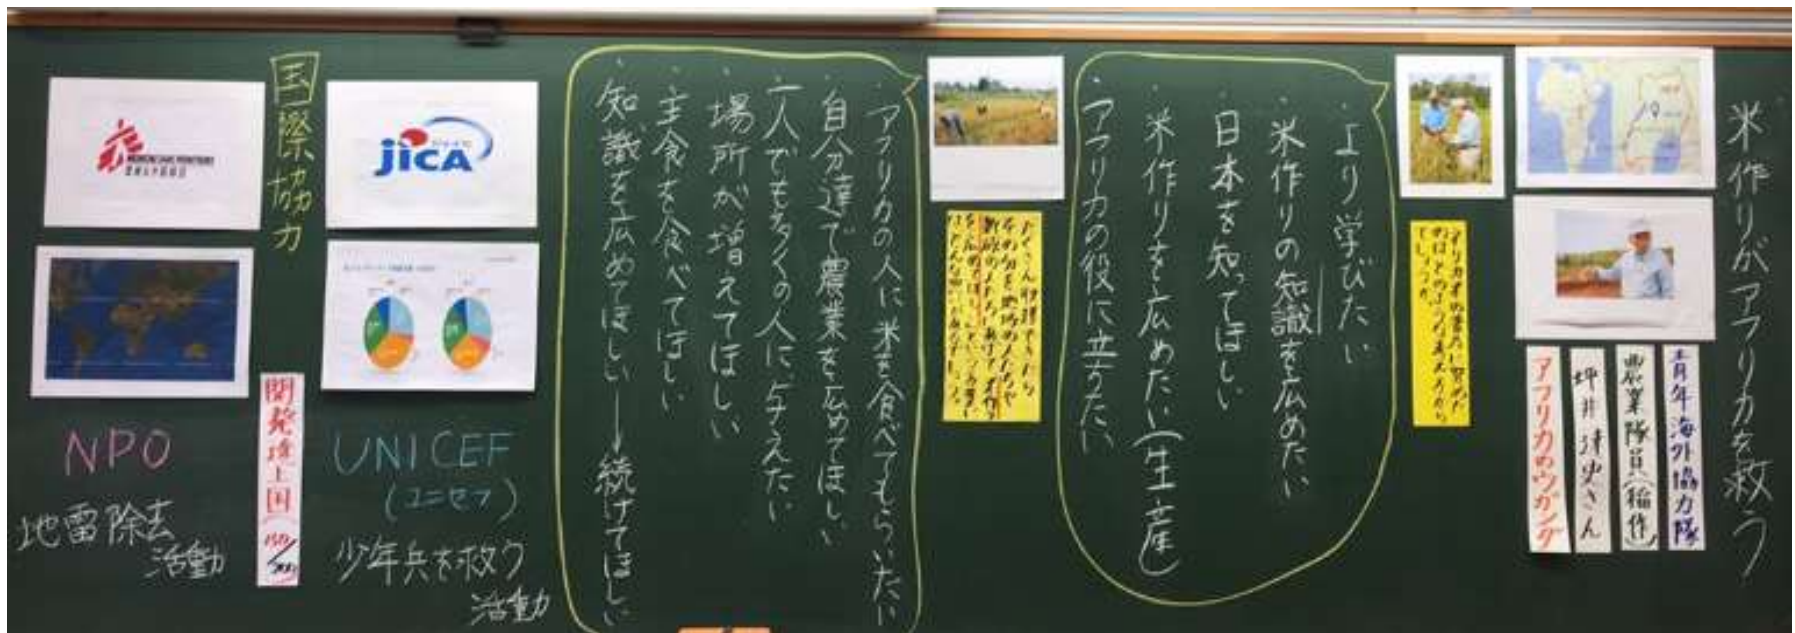 米作りがアフリカを救う
青年海外協力隊
農業隊員(稲作)
坪井達史さん
アフリカのウガンダ
より学びたい
米作りの知識を広めたい
日本を知ってほしい
米作りを広めたい(生産)
アフリカの役に立ちたい
アフリカの人に米を食べてもらいたい
自分達で農業を広めてほしい
一人でも多くの人に与えたい
場所が増えてほしい
主食を食べてほしい
知識を広めてほしい→続けてほしい
国際協力
JICA
UNICEF
(ユニセフ)
少年兵を救う
活動
開発途上国
MEDECINS SANS FRONTIERES
国境なき医師団
NPO
地雷除去
活動